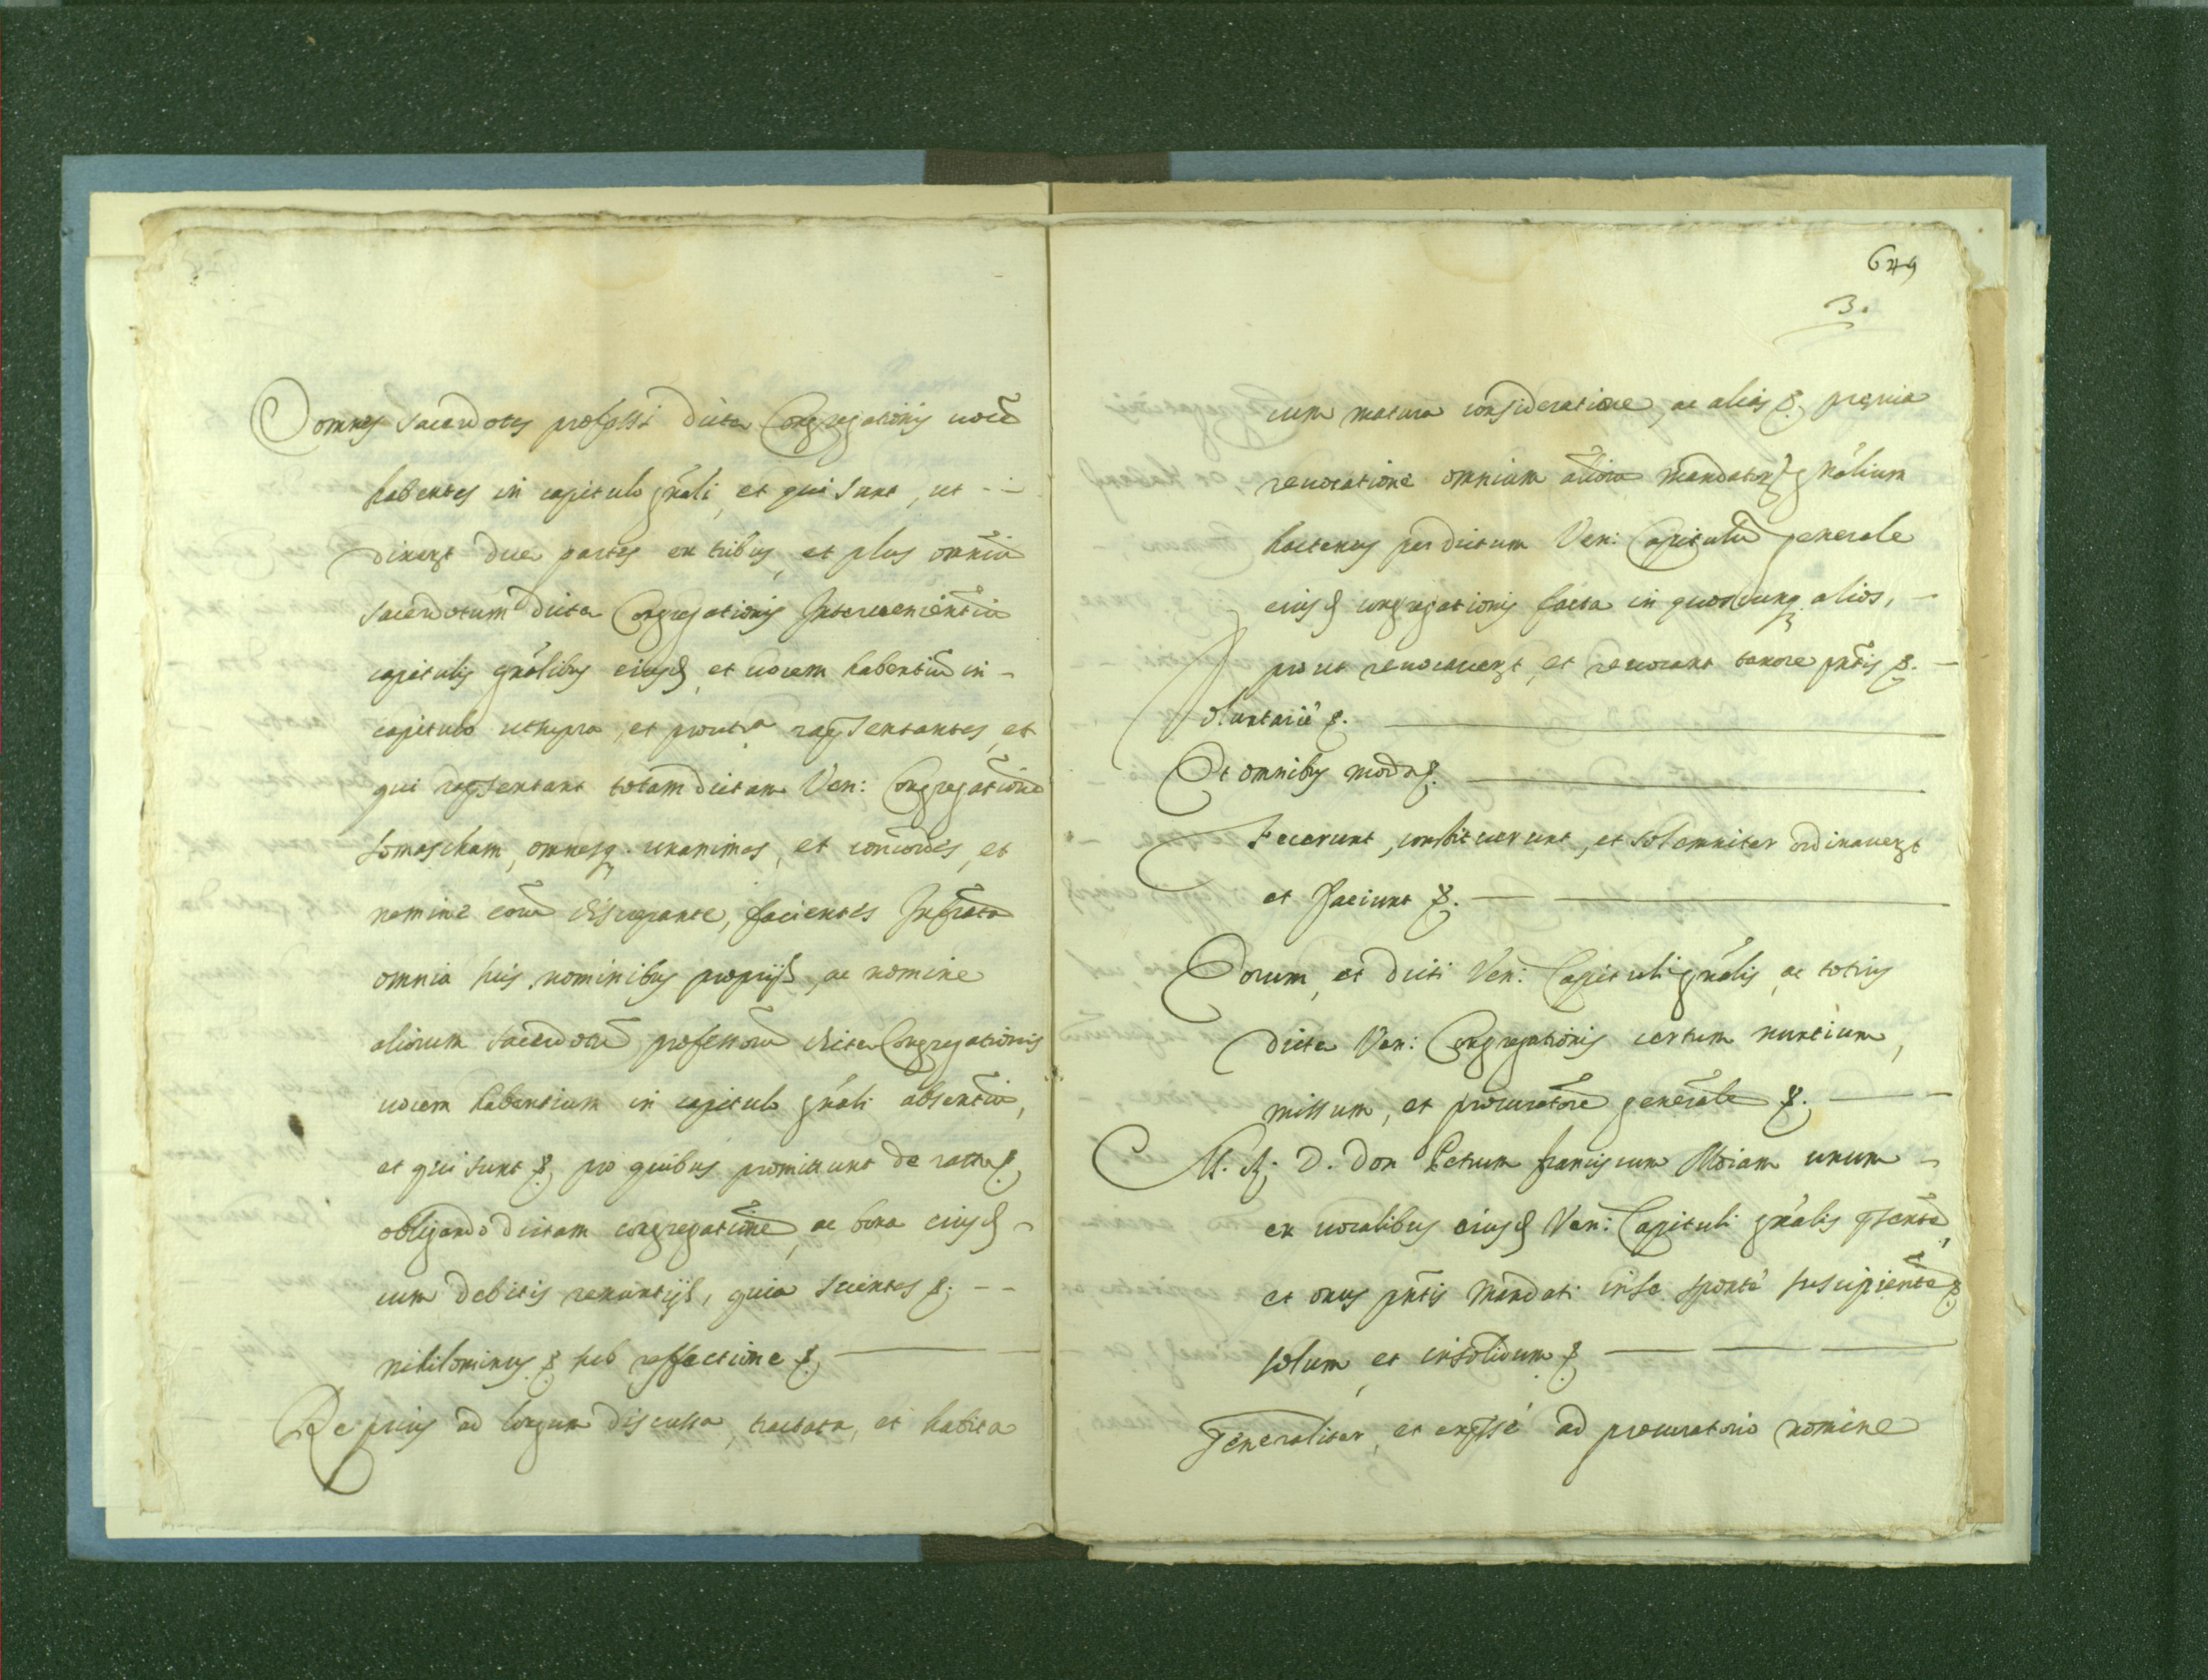 omnes sacerdotes professi dictæ Congregationis uocẽ
habentes in capitulo gñali, et qui sunt, ut -
dixert due partes ex tribus, et plus omniũ
sacerdotum dictæ Congregationis Interuenientiũ
capitulis gñalibus eiusd, et uocem habentiũ in -
capitulo ut supra, et prout sa rapsentantes, et
qui rapsentant totam dictam Ven: Congregationẽ
somascham, omnesq. unanimes, et concordes, et
nemine eorũ discrepante, facientes Infrãta
omnia suis nominibus proprijs, ac nomine
aliorum sacerdotũ professorũ dictæ Congregationis
uocem habentium in capitulo gñali absentiũ,
et qui sunt &, pro quibus promittunt de ratto &,
obligando dictam congregationẽ, ac bona eiusd -
cum debitis renuntijs, quia scientes &. - -
nihilominus & sub reffectione &,
Re prius ad longum discussa, tractata, et habita
649
3.
cum matura consideratione, ac alias &, preuia
reuocatione omnium aliorũ mandator gñalium
hactenus per dictum Ven: Capitulũ generale
eiusd congregationis facta in quoscunq alios, -
prout reuocauert, et reuocant tenore pñtis &. -
Voluntariè &.
Et omnibus modis &.
Fecerunt, constituerunt, et solemniter ordinauert
et faciunt &.
Eorum, et dicti Ven: Capituli gñalis, ac totius
dictæ Ven: Congregationis certum nuntium,
missum, et procuratorẽ generalẽ &.
M. R. D. Don Petrum franciscum Moiam unum -
ex uocalibus eiusd Ven: Capituli gñalis psentẽ,
et onus pñtis Mandati in se spontè suscipientẽ &
solum, et insolidum &
Generaliter, et expssè ad procuratorio nomine